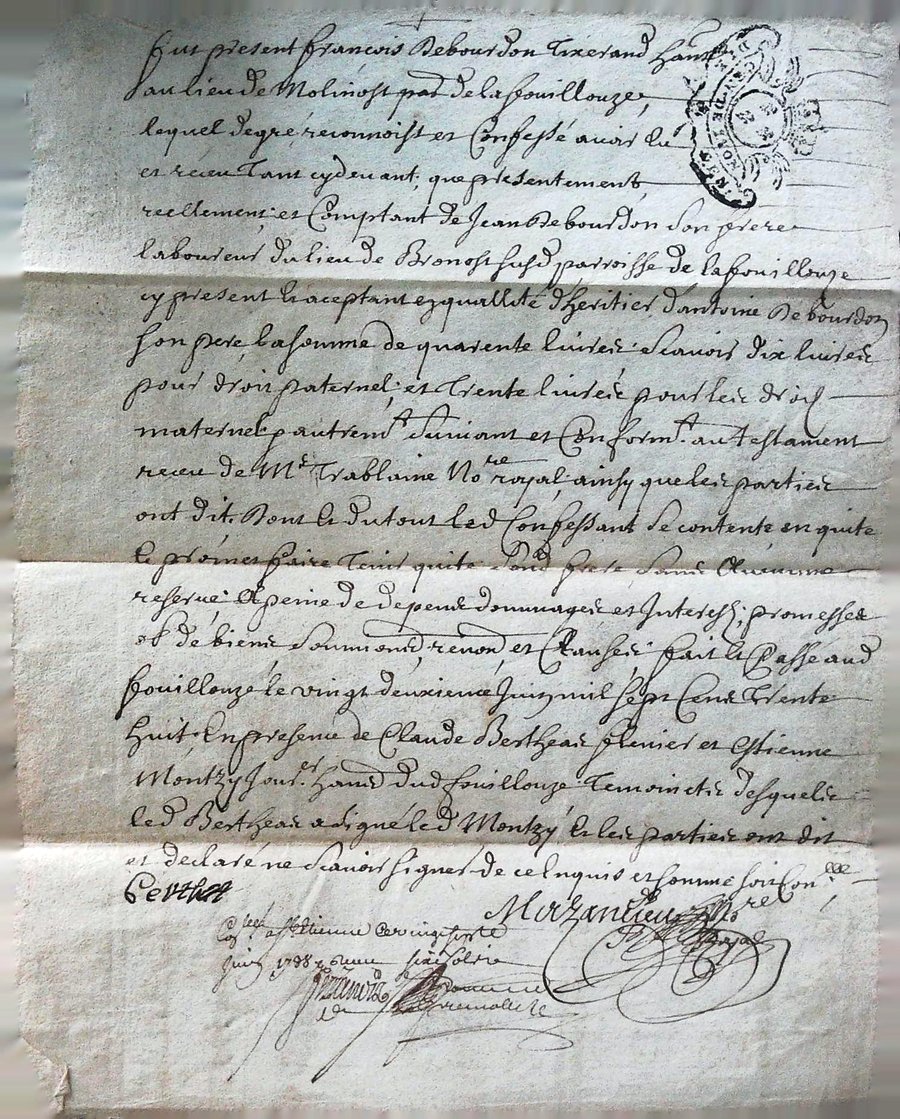 fut present françois Debourdon Tixerand Hant
au lieu de Molinost par de lafouillouze,
lequel de gré, reconnoist et Confessé avoir Eu
et reçeu Tant cy devant, que presentement,
reellement, et Comptant de Jean Debourdon son frere
laboureur du lieu de Bronost susd parroisse de lafouillouze
cy present & aceptant ez quallité d'heritier d'antoine Debourdon
son pere, la somme de quarente livres; Scavoir dix livres
pour droit paternel; et Trente livres pour les droit
maternel, p autrem.t Suivant et Conform.t au testament
receu de M.e Trablaine No.re royal, ainsy que les parties
ont dit. Dont & du tout led Confessant se contente, en quite
& promet faire Tenir quite Sond frere, Sans Aucune
reserve. A peine de depens dommages et Interest, promesses
ob de biens Soumond, renond, et Clauses; fait & Passé aud
fouillouze le vingt deuxieme Juin mil Sept Cens Trente
huit, En presence de Claude Ostienne
Montzy Jour.er hand dud fouillouze Temoins desquels
led Bertheas a signé led Montzy & les parties ont dit
et declaré ne Scavoir signer de ce Enquis et somme
Berthea
No.re
Royal
a St Etienne Ce vingt
Juin 1738 Six Sols